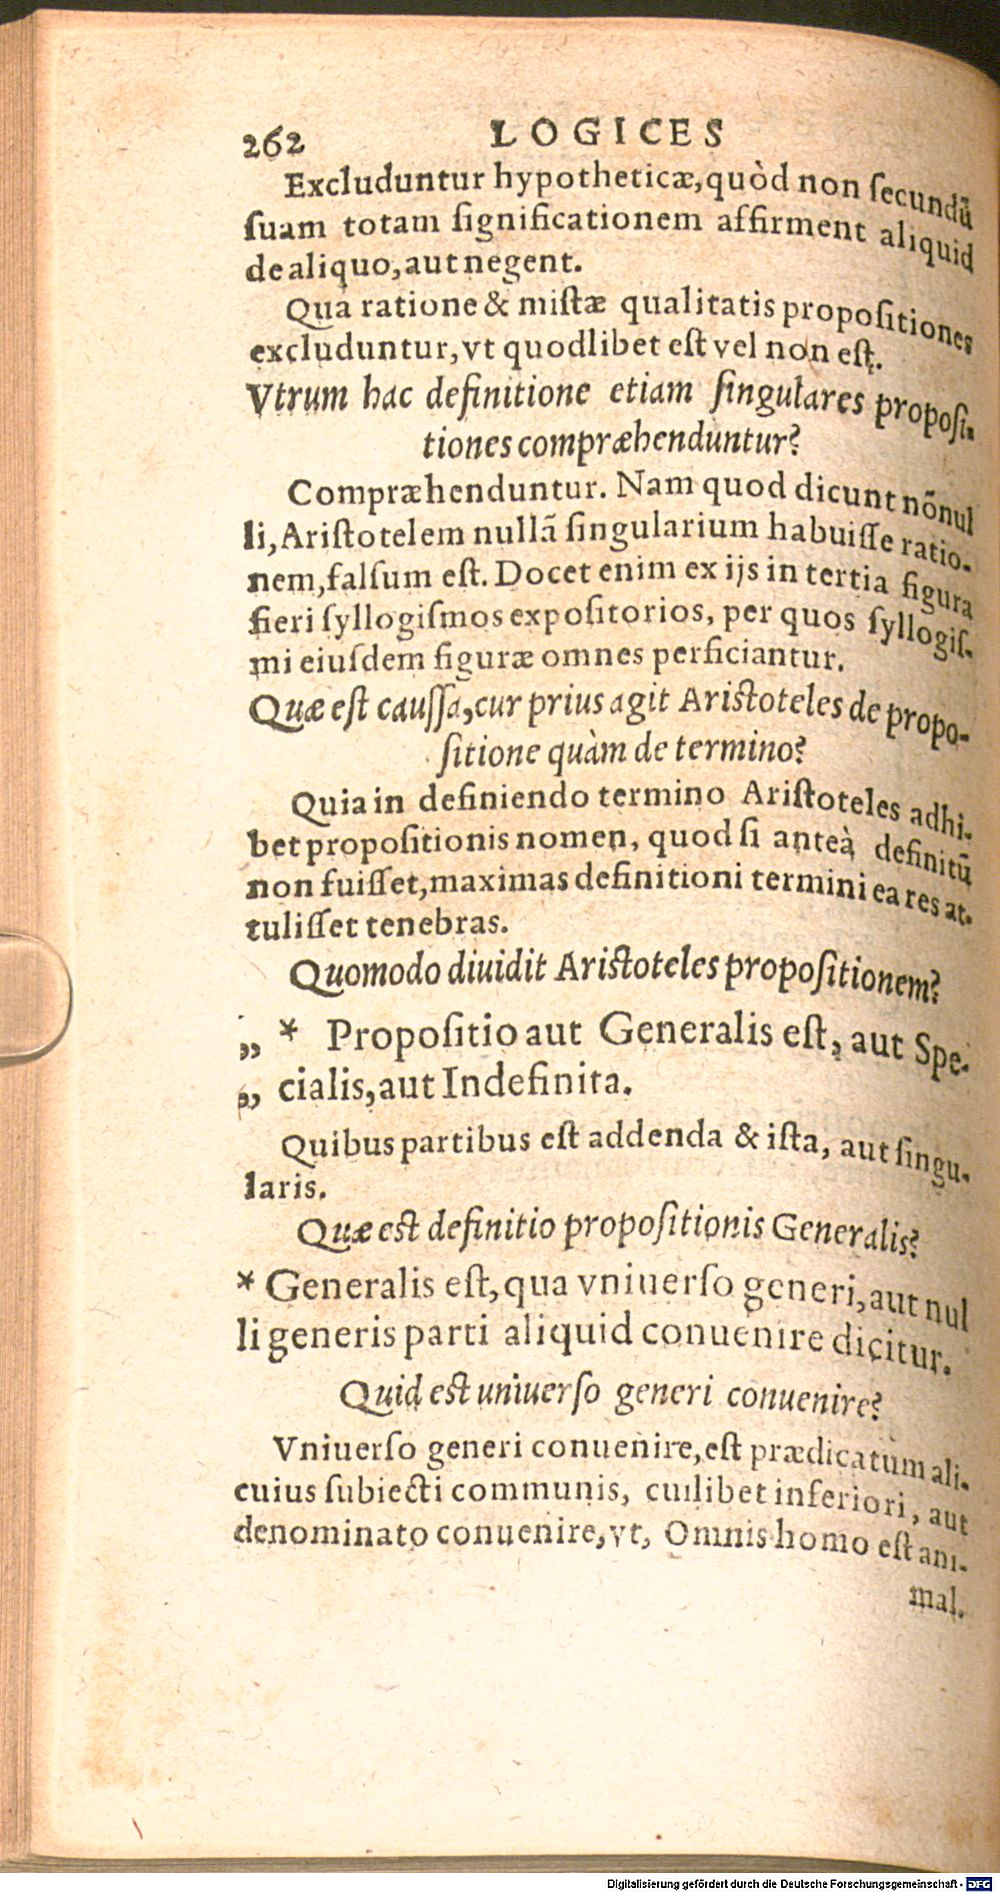 262 LOGICES
Excluduntur hypotheticæ, quòd non ſecundũ
ſuam totam ſignificationem affirment aliquid
de aliquo, aut negent.
Qua ratione & miſtæ qualitatis propoſitiones
excluduntur, vt quodlibet eſt vel non eſt.
Vtrum hac definitione etiam ſingulares propoſi-
tiones compræhenduntur?
Compræhenduntur. Nam quod dicunt nõnul
li, Ariſtotelem nullã ſingularium habuiſſe ratio-
nem, falſum eſt. Docet enim ex ijs in tertia figura
fieri ſyllogiſmos expoſitorios, per quos ſyllogiſ-
mi eiuſdem figuræ omnes perficiantur.
Quæ eſt cauſſa, cur prius agit Ariſtoteles de propo-
ſitione quàm de termino?
Quia in definiendo termino Ariſtoteles adhi-
bet propoſitionis nomen, quod ſi anteà definitũ
non fuiſſet, maximas definitioni termini ea res at-
tuliſſet tenebras.
Quomodo diuidit Ariſtoteles propoſitionem?
„ * Propoſitio aut Generalis eſt, aut Spe-
„ cialis, aut Indefinita.
Quibus partibus eſt addenda & iſta, aut ſingu-
laris.
Quæ eſt definitio propoſitionis Generalis?
* Generalis eſt, qua vniuerſo generi, aut nul
li generis parti aliquid conuenire dicitur.
Quid eſt uniuerſo generi conuenire?
Vniuerſo generi conuenire, eſt prædicatum ali-
cuius ſubiecti communis, cuilibet inferiori, aut
denominato conuenire, vt, Omnis homo eſt ani-
mal.
Digitalisierung gefördert durch die Deutsche Forschungsgemeinschaft - DFG